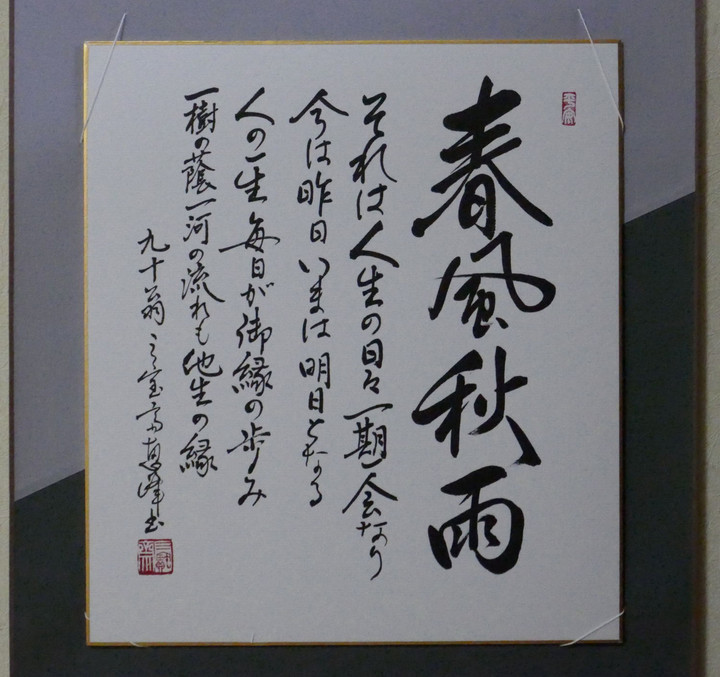 春風秋雨
それは人生の日々一期一会なり
今は昨日いまは明日となる
人の一生毎日が御縁の歩み
一樹の蔭一河の流れも他生の縁
九十翁 三宝高恵峰書